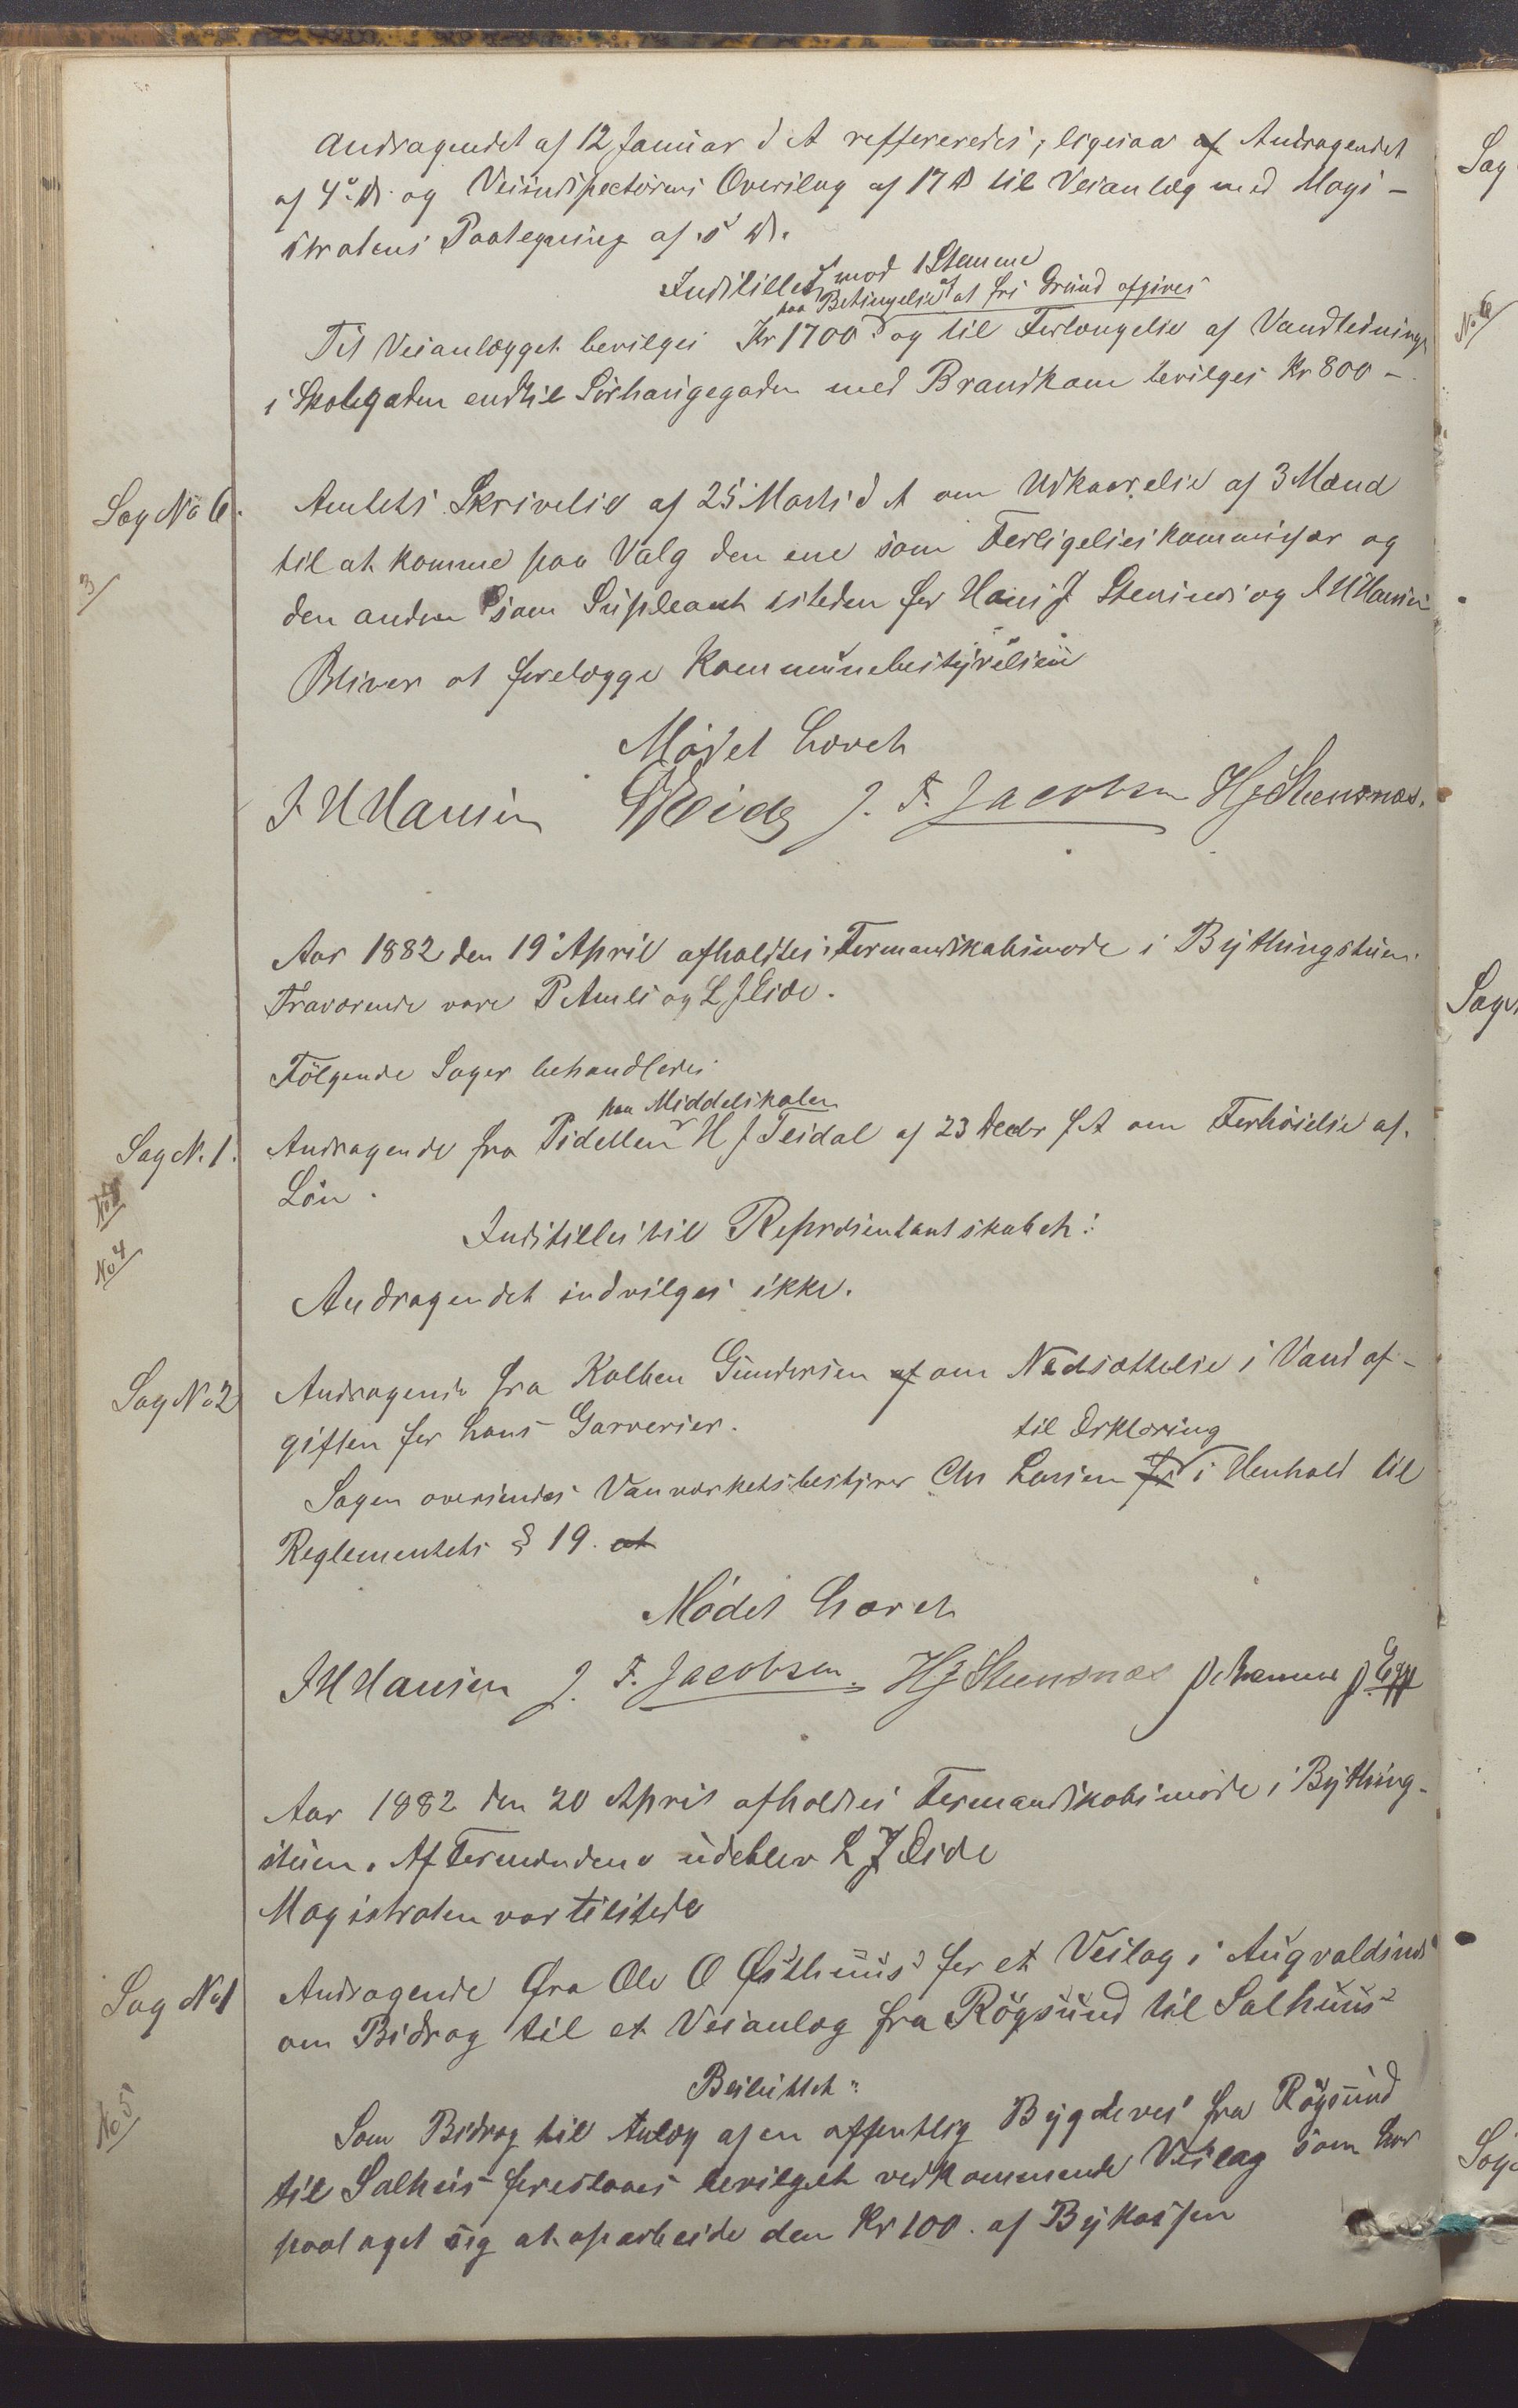 Andragendet af 12 Januar d A reffereredes, ligesaa af Andragendet
af 4de ds. og Veiinspectørens Overslag af 17 ds til Veianlæg med Magi-
stratens Paategning af s d.
Indstilles mod 1 Stemme
paa Betingelse af at fri Grund afgives
Til Veianlægget bevilges Kr 1700 og til Forlængelse af Vandledning
i Skolegaden endtil Sørhaugegaden med Brandkam bevilges Kr 800 -
Sag No 6.
3/
Amtets Skrivelse af 25 Marts d A om Udkaarelse af 3 Mænd
til at komme paa Valg den ene som Forligelseskommissær og
den anden som Supleant isteden for Hans J Stensnes og J H Hansen
Bliver at forelægge Kommunebestyrelsen
Mødet hævet
J H Hansen Eide J. F. Jacobsen H J Stensnæs.
Aar 1882 den 19 April afholdtes Formandskabsmøde i Bythingstuen.
Fraværende vare P Amli og L J Eide.
Følgende Sager behandledes
Sag N. 1.
No 4
paa Middelskolen
Andragende fra Pidellen H J Teidal af 23 Decbr f A om Forhøielse af
Løn.
Indstilles til Repræsentantskabet:
Andragendet indvilges ikke.
Sag No 2
Andragende fra Kolben Gundersen af om Nedsættelse i Vandaf-
giften for hans Garverier.
til Erklæring
Sagen oversendes Vanværketsbestyrer Chr Larsen for i Henhold til
Reglementets § 19. at
Mødet hævet
J H Hansen J. F. Jacobsen. H J Stensnæs
Aar 1882 den 20 April afholdtes Formandskabsmøde i Bything-
stuen. Af Formændene udeblev L J Eide
Magistraten var tilstede
Sag No 1
Andragende fra Ole O Østhuus for et Veilag i Augvaldsnes
om Bidrag til et Veianlæg fra Røgsund til Salhuus
Besluttet:
No 5
Som Bidrag til Anlæg af en offentlig Bygdevei fra Røgsund
til Salhus foreslaaes bevilget vedkommende Veilag som har
paataget sig at oparbeide den Kr 100. af Bykassen
Sag
No 6/
Sag
Sag